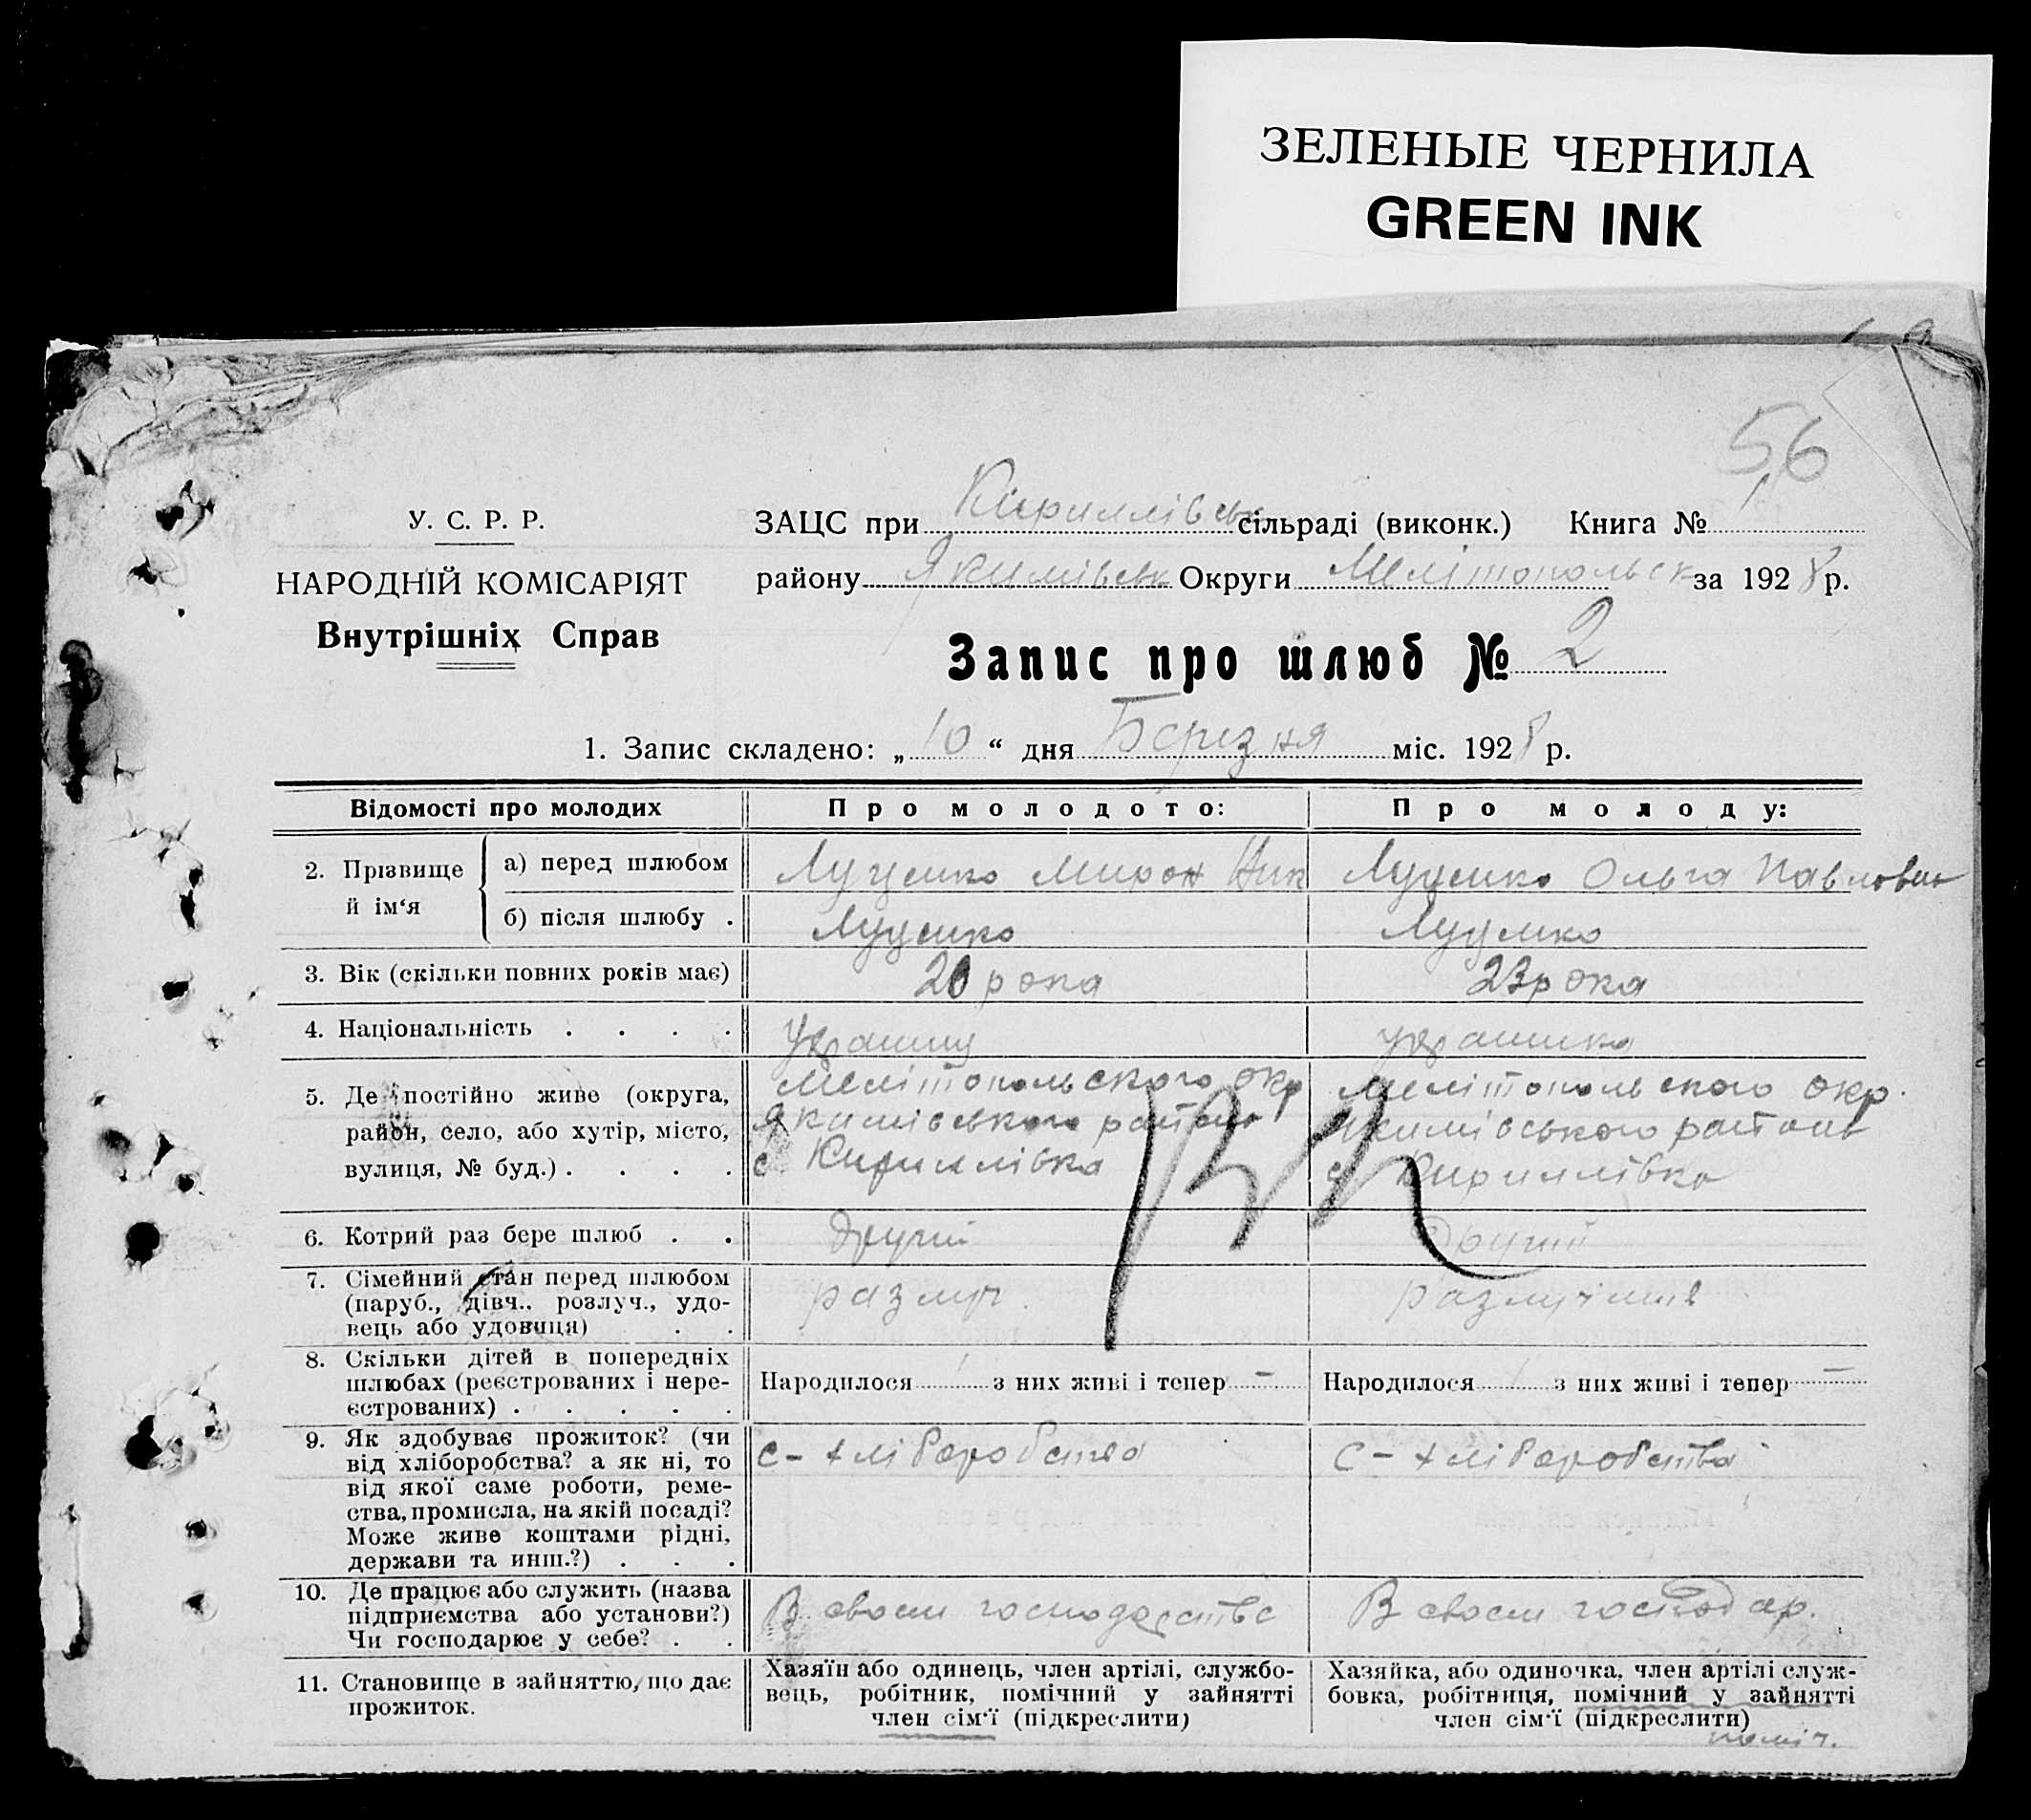 ЗЕЛЕНЫЕ ЧЕРНИЛА
GREEN INK
56
У. С. Р. Р.
НАРОДНІЙ КОМІСАРІЯТ
Внутрішніх Справ
ЗАЦС при Кириллівськ сільраді (виконк.) Книга №
району Якимівськ Округи Мелітопольськ за 1928 р.
Запис про шлюб № 2
1. Запис складено: „10“ дня Березня міс. 1928 р.
Відомості про молодих
Про молодого:
Про молоду:
2. Прізвище й ім‘я
а) перед шлюбом
Луценко Мирон Ник
Луценко Ольга Павловна
б) після шлюбу .
Луценко
Луценко
3. Вік (скільки повних років має)
20 рока
23 рока
4. Національність . . . .
украинц
украинка
5. Де постійно живе (округа,
район, село, або хутір, місто,
вулиця, № буд.) . . . .
Мелітопольского окр
Якимівського району
с. Кириллівка
Мелітопольского окр.
Якимівського району
с Кириллівка
6. Котрий раз бере шлюб . .
другий
Другий
7. Сімейний стан перед шлюбом
(паруб., дівч., розлуч., удо-
вець або удовиця) . .
разлуч.
8. Скільки дітей в попередніх
шлюбах (реєстрованих і нере-
єстрованих) . . . . .
Народилося / з них живі і тепер –
Народилося / з них живі і тепер –
9. Як здобуває прожиток? (чи
від хліборобства? а як ні, то
від якої саме роботи, реме-
ства, промисла, на якій посаді?
Може живе коштами рідні,
держави та инш.?) . . .
С - хліборобство
С - хліборобства
10. Де працює або служить (назва
підприємства або установи?)
Чи господарює у себе? . .
В своем господарстве
В своем господар.
11. Становище в зайняттю, що дає
прожиток.
Хазяїн або одинець, член артілі, службо-
вець, робітник, помічний у зайнятті
член сім‘ї (підкреслити)
Хазяйка, або одиночка, член артілі служ-
бовка, робітниця, помічний у зайнятті
член сім‘ї (підкреслити)
поміч.